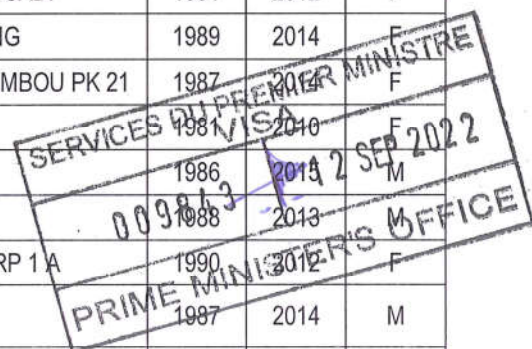 NG 1989 2014 F
MBOU PK 21 1987 2014 F
1981 2010 F
1986 2015 M
1988 2013 M
RP 1 A 1990 2012 F
1987 2014 M
SERVICES DU PREMIER MINISTRE
VISA
009843 12 SEP 2022
PRIME MINISTER'S OFFICE